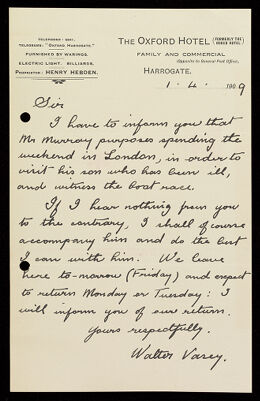 TELEPHONE: 581.
TELEGRAMS: "OXFORD HARROGATE."
FURNISHED BY WARINGS.
ELECTRIC LIGHT. BILLIARDS.
PROPRIETOR: HENRY HEBDEN.
THE OXFORD HOTEL (FORMERLY THE
FAMILY AND COMMERCIAL
Opposite to General Post Office,
HARROGATE.
1. 4. 1909
Sir
I have to inform you that
Mr Murray purposes spending the
weekend in London, in order to
visit his son who has been ill,
and witness the boat race.
If I hear nothing from you
to the contrary, I shall of course
accompany him and do the best
I can with him. We leave
here to-morrow (Friday) and expect
to return Monday or Tuesday: I
will inform you of our return.
Yours respectfully.
Walter Vasey.